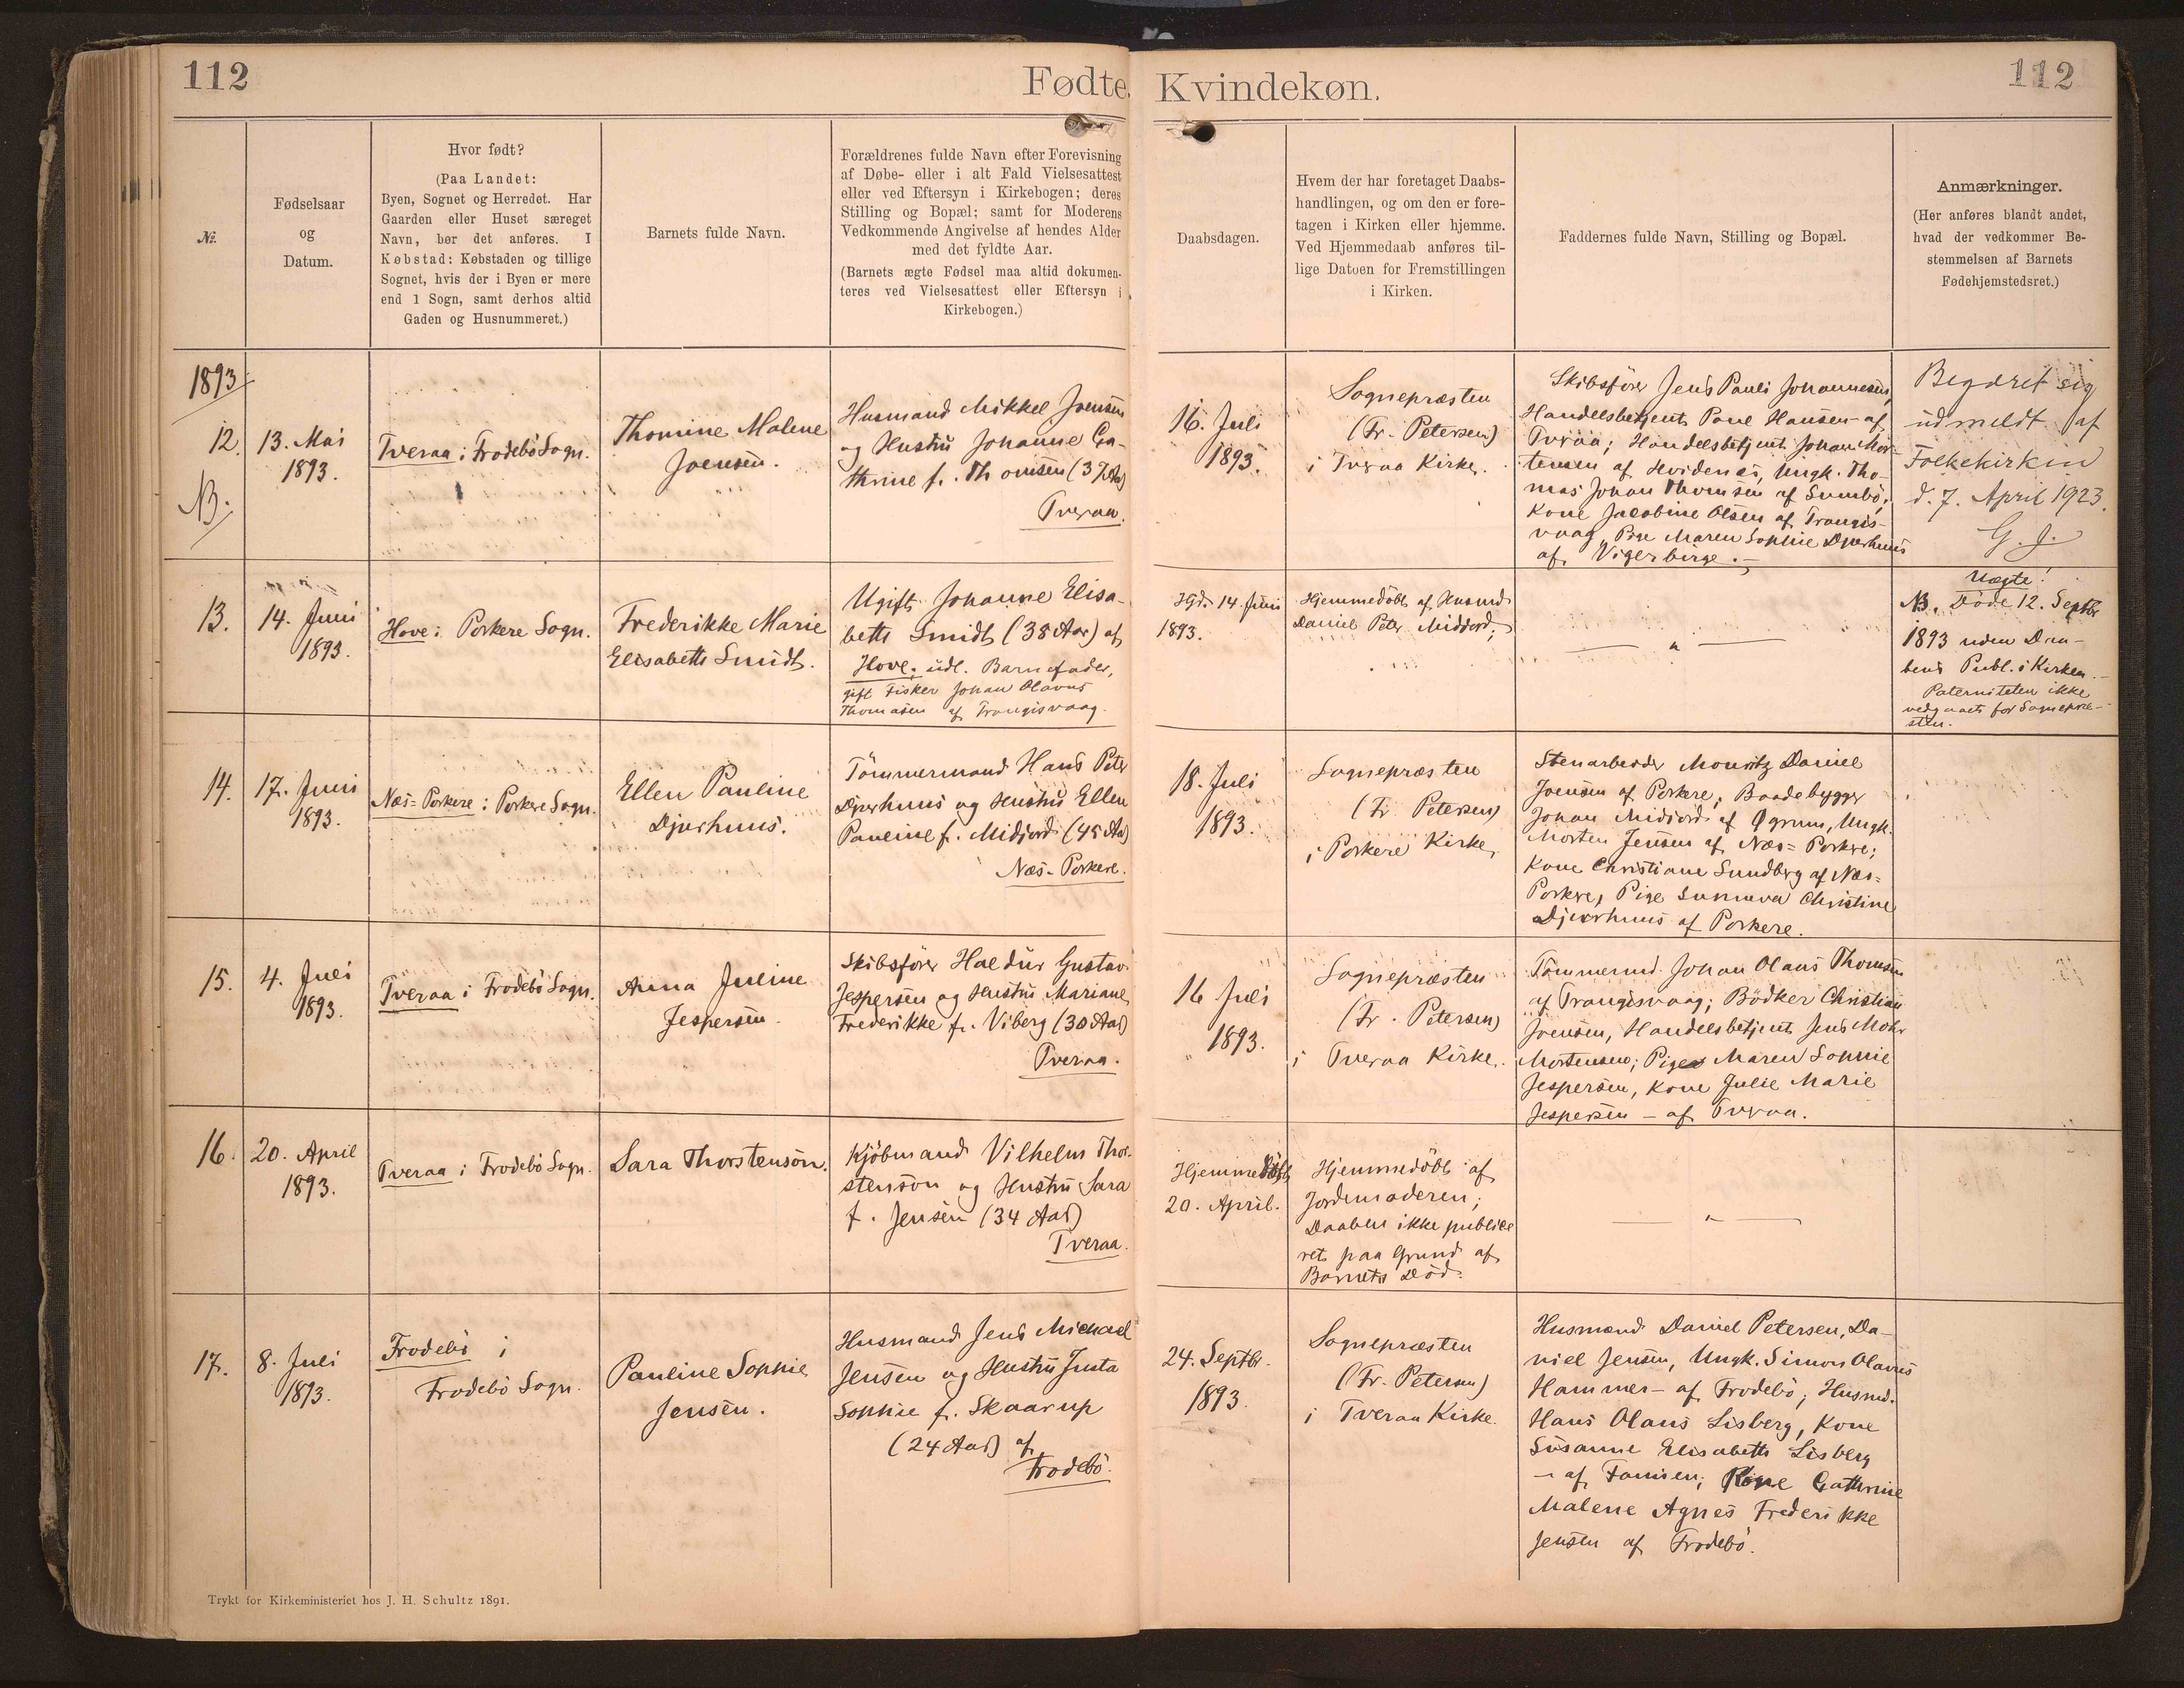 112
Fødte.
Kvindekøn.
112
№.
Fødselsaar
og
Datum.
Hvor født?
(Paa Landet:
Byen, Sognet og Herredet. Har
Gaarden eller Huset særeget
Navn, bør det anføres. I
Købstad: Købstaden og tillige
Sognet, hvis der i Byen er mere
end 1 Sogn, samt derhos altid
Gaden og Husnummeret.)
Barnets fulde Navn.
Forældrenes fulde Navn efter Forevisning
af Døbe- eller i alt Fald Vielsesattest
eller ved Eftersyn i Kirkebogen; deres
Stilling og Bopæl; samt for Moderens
Vedkommende Angivelse af hendes Alder
med det fyldte Aar.
(Barnets ægte Fødsel maa altid dokumen-
teres ved Vielsesattest eller Eftersyn i
Kirkebogen.)
Daabsdagen.
Hvem der har foretaget Daabs-
handlingen, og om den er fore-
tagen i Kirken eller hjemme.
Ved Hjemmedaab anføres til-
lige Datoen for Fremstillingen
i Kirken.
Faddernes fulde Navn, Stilling og Bopæl.
Anmærkninger.
(Her anføres blandt andet,
hvad der vedkommer Be-
stemmelsen af Barnets
Fødehjemstedsret.)
1893
12.
NB.
13. Mai
1893.
Tveraa i Frodebö Sogn.
Thomine Malene
Joensen.
Husmand Mikkel Joensen
og Hustru Johanne Ca-
thrine f. Thomsen (37 Aar)
Tveraa.
16. Juli
1893.
Sognepræsten
(Fr. Petersen)
i Tveraa Kirke.
Skibsförer Jens Pauli Johannesen,
Handelsbetjent Poul Hansen - af
Tveraa; Handelsbetjent Johan Mor-
tensen af Hvidenæs, Ungk. Tho-
mas Johan Thomsen af Sumbö;
Kone Jacobine Olsen af Trangis-
vaag, Pige Maren Sophie Djurhuus
af Vigerbirge.
Begæret sig
udmeldt af
Folkekirken
d. 7. April 1923.
G. J.
13.
14. Juni
1893.
Hove i Porkere Sogn.
Frederikke Marie
Elisabeth Smidt.
Ugift Johanne Elisa-
beth Smidt (38 Aar) af
Hove; udl. Barnefader,
gift Fisker Johan Olavus
Thomasen af Trangisvaag.
Hjd. 14. Juni
1893.
Hjemmedöbt af Husmd.
Daniel Peter Midjord;
— " —
Uægte!
NB. Döde 12. Septbr
1893 uden Daa-
bens Publ. i Kirken.-
Paterniteten ikke
vedgaaet for Sognepræ-
sten.
14.
17. Juni
1893.
Næs=Porkere i Porkere Sogn.
Ellen Pauline
Djurhuus.
Tömmermand Hans Peter
Djurhuus og Hustru Ellen
Pauline f. Midjord (45 Aar)
Næs-Porkere.
18. Juli
1893.
Sognepræsten
(Fr. Petersen)
i Porkere Kirke.
Stenarbeider Mouritz Daniel
Joensen af Porkere, Baadebygger
Johan Midjord af Øgrum, Ungk.
Morten Jensen af Næs=Porkere;
Kone Christiane Sundberg af Næs=
Porkere, Pige Sunneva Christine
Djurhuus af Porkere.
15.
4. Juli
1893.
Tveraa i Frodebö Sogn.
Anna Juline
Jespersen.
Skibsförer Haldur Gustav
Jespersen og Hustru Mariane
Frederikke f. Viberg (30 Aar)
Tveraa.
16 Juli
1893.
Sognepræsten
(Fr. Petersen)
i Tveraa Kirke.
Tömmermd. Johan Olaus Thomsen
af Trangisvaag; Bödker Christian
Joensen, Handelsbetjent Jens Mohr
Mortensen; Pige Maren Sophie
Jespersen, Kone Julie Marie
Jespersen - af Tveraa.
16.
20. April
1893.
Tveraa i Frodebö Sogn.
Sara Thorstensön.
Kjöbmand Vilhelm Thor-
stensön og Hustru Sara
f. Jensen (34 Aar)
Tveraa.
Hjemmedöbt
20. April.
Hjemmedöbt af
Jordemoderen;
Daaben ikke publice
ret paa Grund af
Barnets Död.
— " —
17.
8. Juli
1893.
Frodebö i
Frodebö Sogn.
Pauline Sophie
Jensen.
Husmand Jens Michael
Jensen og Hustru Justa
Sophie f. Skaarup
(24 Aar) af
Frodebö.
24. Septbr.
1893.
Sognepræsten
(Fr. Petersen)
i Tveraa Kirke.
Husmænd Daniel Petersen, Da-
niel Jensen, Ungk. Simon Olavus
Hammer - af Frodebö; Husmd.
Hans Olaus Lisberg, Kone
Susanne Elisabeth Lisberg
- af Famien; Cathrine
Malene Agnes Frederikke
Jensen af Frodebö.
Trykt for Kirkeministeriet hos J. H. Schultz 1891.